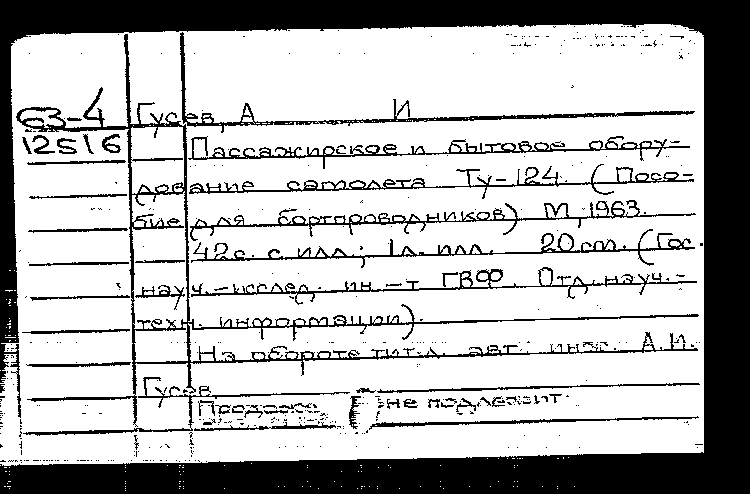 63-4
12516
Гусев, А И
Пассажирское и бытовое обору-
дование самолета Ту-124. (Посо-
бие для бортпроводников) М, 1963.
42с. с илл.; 1л. илл. 20см. (Гос.
науч.-исслед. ин-т ГВФ. Отд. науч.-
техн. информации).
На обороте тит. л. авт.: инж. А.И.
Гусев
Продаже не подлежит.